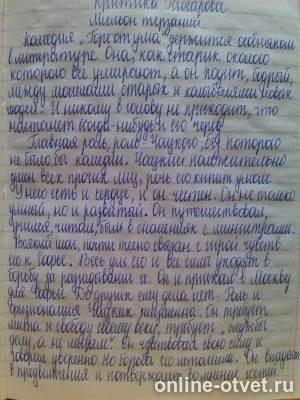 Критика Гончарова
Мильон терзаний
комедия „Горе от ума" держится особняком
в литературе. Она, как старик около
которого все умирают, а он ходит, бодрый,
между могилами старых и колыбелями новых
людей. И никому в голову не приходит, что
настанет когда-нибудь и его черёд.
Главная роль, роль Чацкого, без которого
не было бы комедии. Чацкий положительно
умен всех прочих лиц, речь его кипит умом
У него есть и сердце, и он честен. Он не только
умный, но и развитой. Он путешествовал,
учился, читал, был в сношениях с министрами.
Всякий шаг, почти тесно связан с игрой чувств
его к Софье. Весь его и все силы уходят в
борьбу за разгадывание ее. Он и приехал в Москву
для Софьи. До других ему дела нет. Роль и
физиономия Чацких неизменна. Он требует
места и свободу своему веку, требует „службы
делу, а не лицам". Он чувствовал свою силу и
говорил уверенно. Но борьба его истомила. Он впадает
в преувеличения и подтверждает во мнение гостей
online-otvet.ru